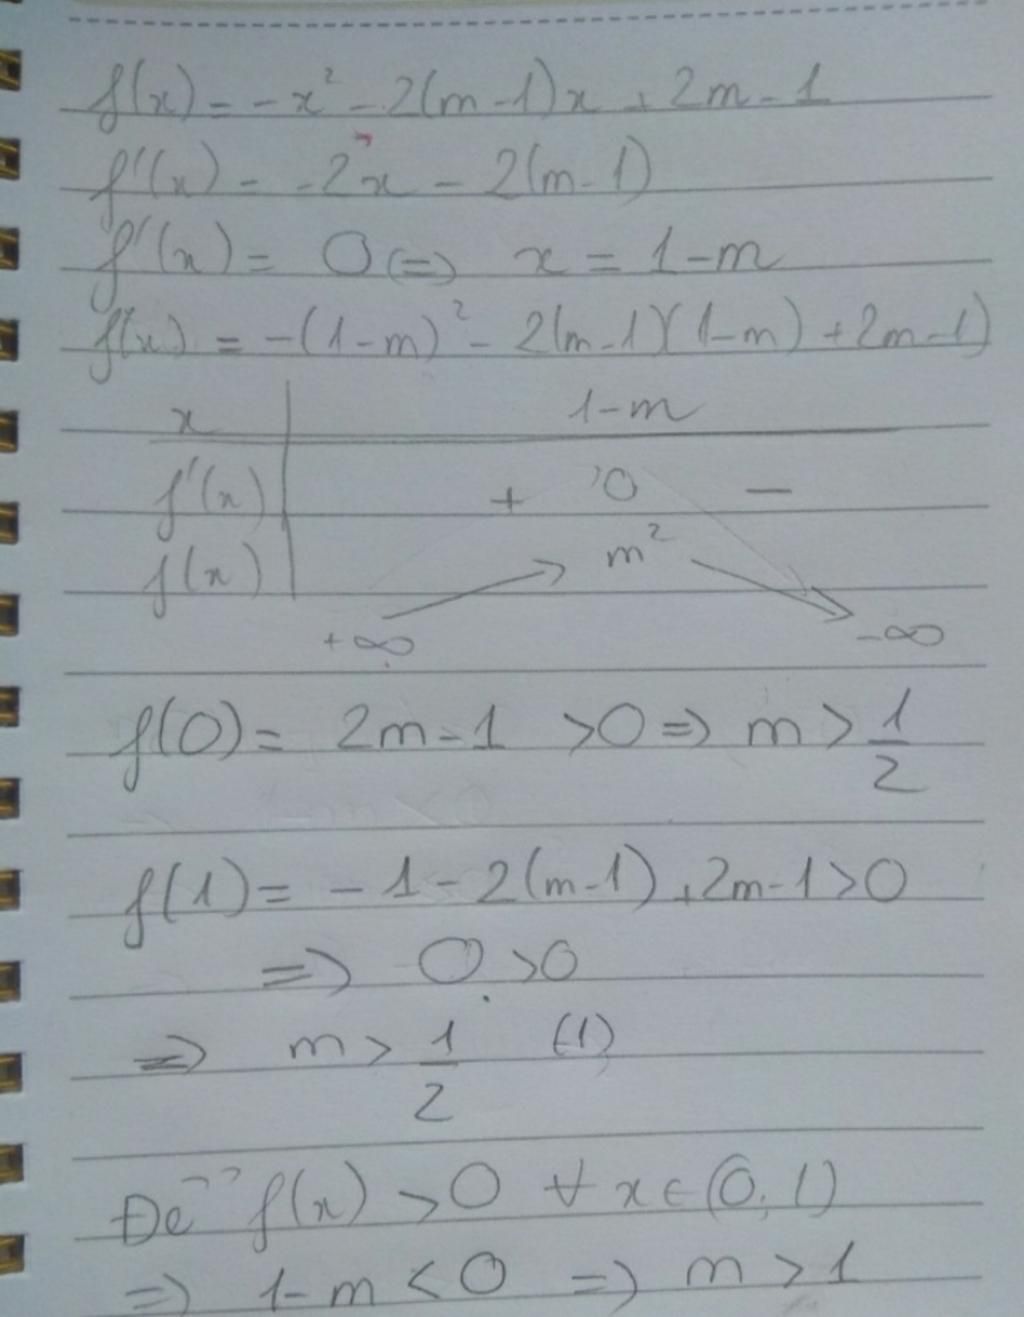 f(x) = -x² - 2(m-1)x + 2m - 1
f'(x) = -2x - 2(m-1)
f'(x) = 0 <=> x = 1-m
f(x) = -(1-m)² - 2(m-1)(1-m) + 2m-1)
x 1-m
f'(x) + 0 -
f(x) m²
+∞ -∞
f(0) = 2m-1 >0 => m > 1/2
f(1) = -1 - 2(m-1) + 2m-1 >0
=> 0 >0
=> m > 1/2 (1)
Để f(x) > 0 ∀ x ∈ (0, 1)
=> 1-m < 0 => m > 1